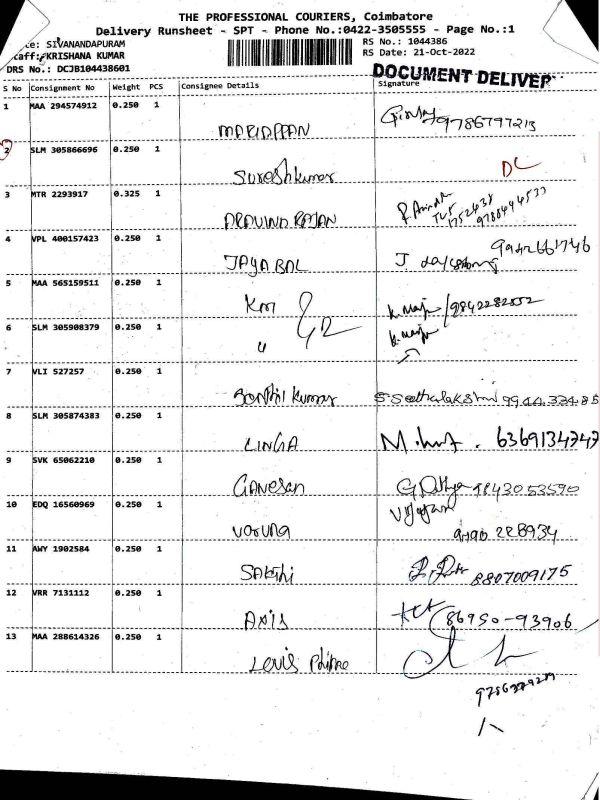 THE PROFESSIONAL COURIERS, Coimbatore
Delivery Runsheet - SPT - Phone No.:0422-3505555 - Page No.:1
te: SIVANANDAPURAM
RS No.: 1044386
taff: KRISHANA KUMAR
RS Date: 21-Oct-2022
DRS No.: DCJB104438601
DOCUMENT DELIVER
S No Consignment No Weight PCS Consignee Details Signature
1 MAA 294574912 0.250 1
MARIAPPAN 9786797213
2 SLM 305866696 0.250 1
Sureshkumar DC
3 MTR 2293917 0.325 1
ARAVIND RAJAN
4 VPL 400157423 0.250 1
JAYA BAL J
5 MAA 565159511 0.250 1
KM
6 SLM 305908379 0.250 1
"
7 VLI 527257 0.250 1
Senthil Kumar S.Seethalakshmi
8 SLM 305874383 0.250 1
LINGA 6369134747
9 SVK 65062210 0.250 1
Ganesan 9843053590
10 EDQ 16560969 0.250 1
Varuna
11 AWY 1902584 0.250 1
Sakthi 8807009175
12 VRR 7131112 0.250 1
Axis 86950-93906
13 MAA 288614326 0.250 1